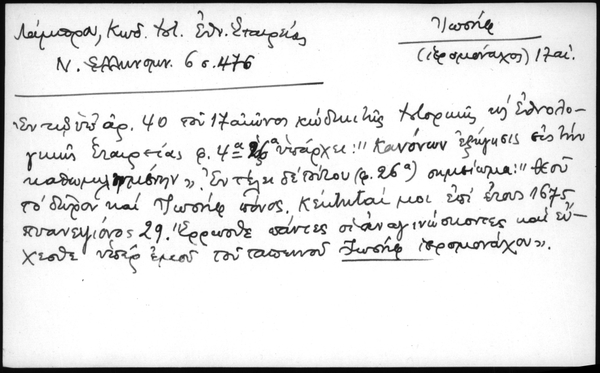 Λάμπρου, Κωδ. Ιστ. Εθν. Εταιρείας
Ν. Ελληνομν. 6 σ. 476
Ἰωσήφ
(ἱερομόναχος) 17 αἰ.
«Ἐν τῷ ὑπ' ἀρ. 40 τοῦ 17 αἰῶνος κώδικι τῆς Ἱστορικῆς κ' Ἐθνολο-
γικῆς Ἑταιρείας φ. 4α - 26α ὑπάρχει: "Κανόνων ἐξήγησις εἰς τὴν
καθωμιλημένην". Ἐν τέλει δὲ τούτου (φ. 26α) σημείωμα: "Θεοῦ
τὸ δῶρον καὶ Ἰωσήφ πόνος, κέκτηταί μοι ἐπὶ ἔτους 1675
πυανεψιόνος 29. Ἔρρωσθε πάντες οἱ ἀναγινώσκοντες καὶ εὔ-
χεσθε ὑπὲρ ἐμοῦ τοῦ ταπεινοῦ Ἰωσήφ ἱερομονάχου».